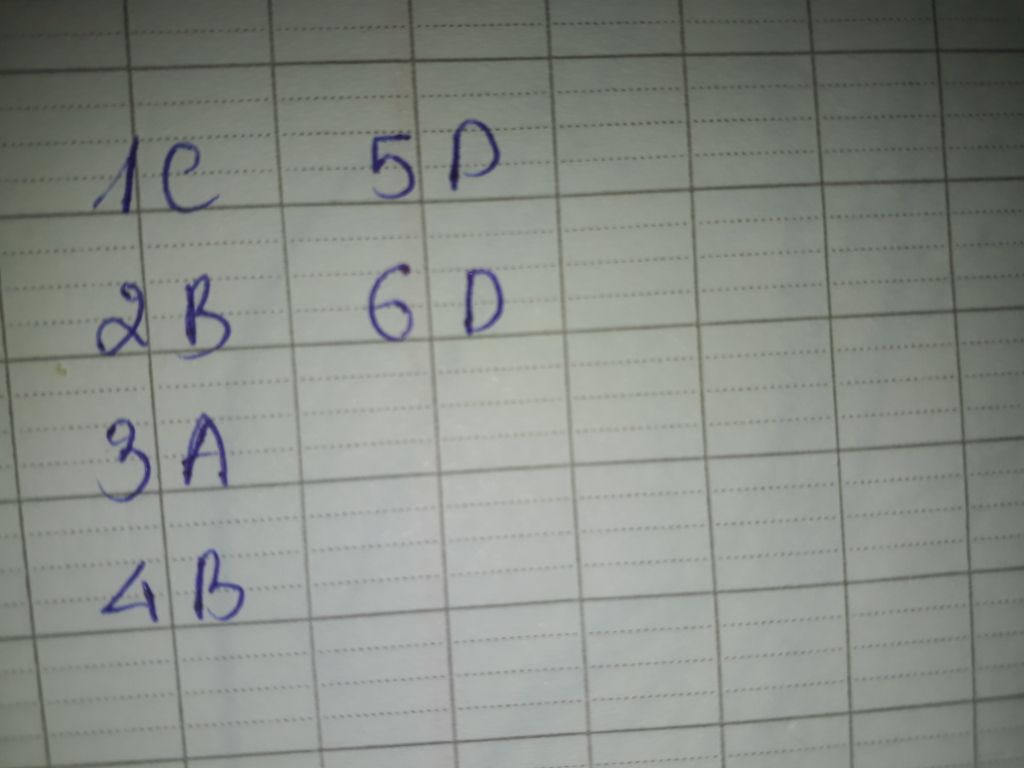 1 C
2 B
3 A
4 B
5 D
6 D